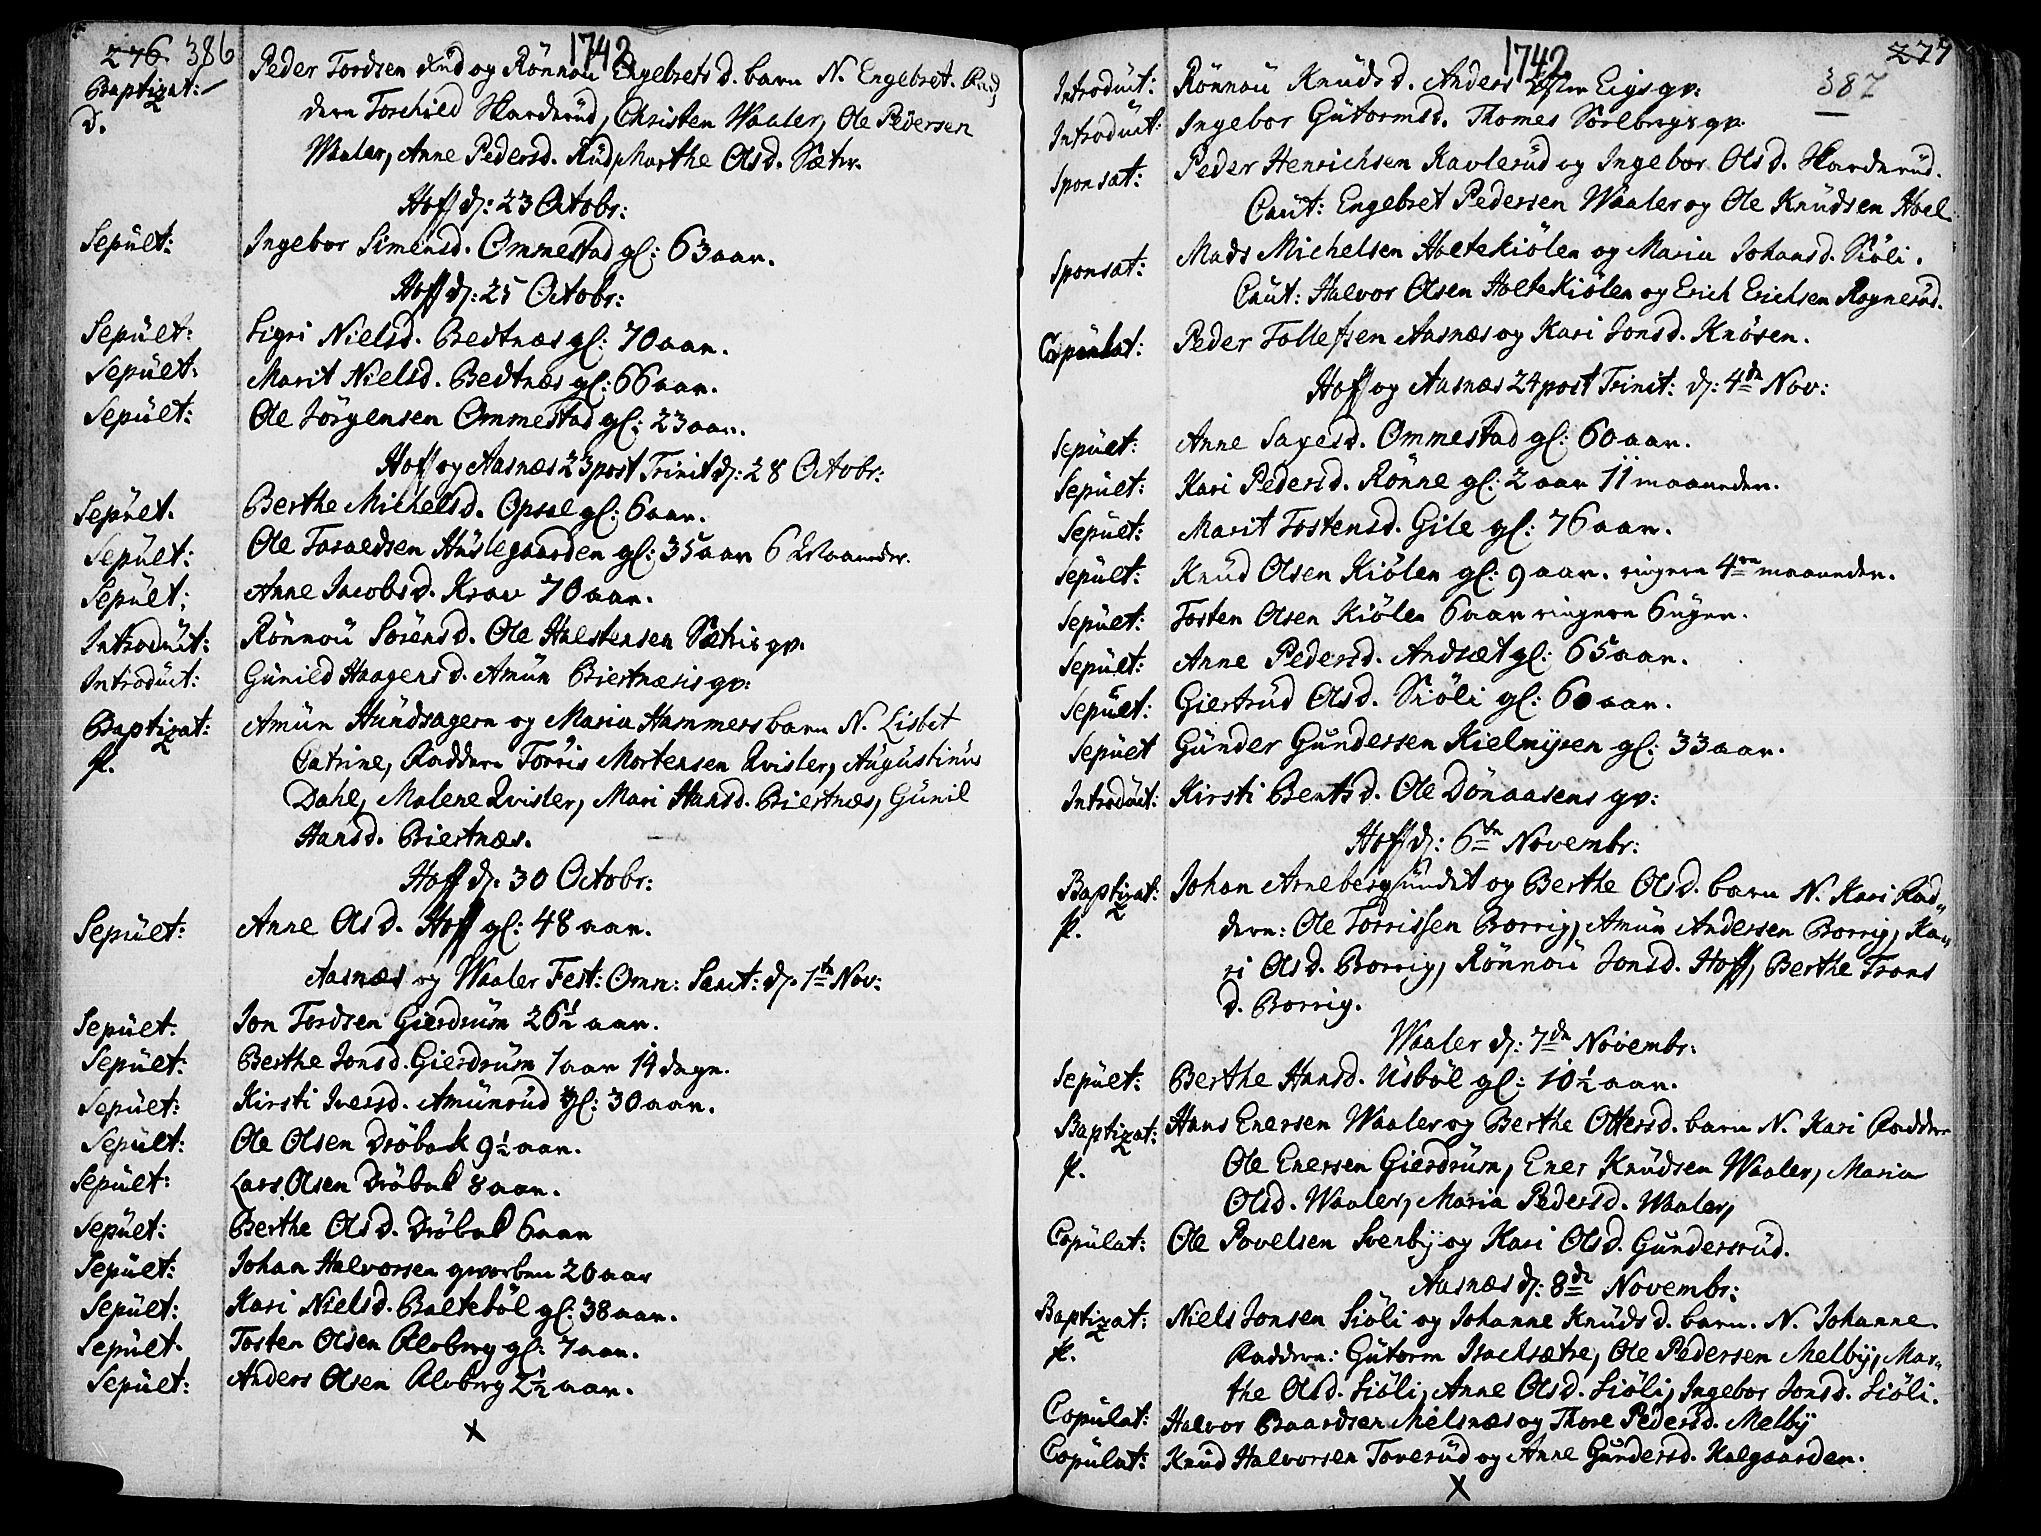 276. 386
1742
Baptizat: Peder Tordsen Rud og Rönnou Engebretsd. barn N. Engebret. Fad,
d. dern Torchield Skarderud, Christen Waaler, Ole Pedersen
Waaler, Anne Pedersd. Rud, Marthe Olsd. Sæter.
Hoff d: 23 Octobr:
Sepult: Ingebor Simensd. Ommestad gl: 63 aar.
Hoff d: 25 Octobr:
Sepult: Sigri Nielsd. Bedtnæs gl: 70 aar.
Sepult: Marit Nielsd. Bedtnæs gl: 66 aar.
Sepult: Ole Jörgensen Ommestad gl: 23 aar.
Hoff og Aasnæs 23 post Trinit d: 28 Octobr:
Sepult. Berthe Michelsd. Opsal gl: 6 aar.
Sepult: Ole Taraldsen Huslegaarden gl: 35 aar 6 Maaneder.
Sepult: Anne Jacobsd. Krav 70 aar.
Introduct: Rönnou Sörensd. Ole Halstensen Sætris qv.
Introduct: Gunild Haagensd. Amun Biertnæsis qv:
Baptizat: Amun Hundsagern og Maria Hammers barn N. Lisbet
f. Catrine, Faddern Torris Mortensen Qvisler, Augustinus
Dahl, Malene Qvisler, Mari Hansd. Biertnæs, Gunil
Hansd. Biertnæs.
Hoff d. 30 Octobr:
Sepult: Anne Olsd. Hoff gl: 48 aar.
Aasnæs og Waaler Fest: Omn: Sanct: d. 1te Nov:
Sepult: Jon Tordsen Gierdrum 26½ aar.
Sepult: Berthe Jonsd. Gierdrum 1 aar 14 dage.
Sepult: Kirsti Iversd. Amunrud gl: 30 aar.
Sepult: Ole Olsen Dröbak 9½ aar.
Sepult: Lars Olsen Dröbak 8 aar.
Sepult: Berthe Olsd. Dröbak 6 aar
Sepult: Johan Halvorsen gevorben 20 aar
Sepult: Kari Nielsd. Balteböl gl: 38 aar.
Sepult. Tosten Olsen Alvberg gl: 7 aar.
Sepult: Anders Olsen Alvberg 2½ aar.
X
1742
277
387
Introduct: Rönnou Knudsd. Anders Öster Eigs qv:
Introduct: Ingebor Gutormsd. Thomes Sörlbergs qv.
Sponsat: Peder Henrichsen Kavlerud og Ingebor Olsd. Skarderud.
Caut: Engebret Pedersen Waaler og Ole Knudsen Hoel
Sponsat: Mads Michelsen Holtekiölen og Maria Johansd. Siöli.
Caut: Halvor Olsen Holtekiölen og Erich Erichsen Rognerud.
Copulat: Peder Tollefsen Aasnæs og Kari Jonsd. Knösen.
Hoff og Aasnæs 24 post Trinit: d: 4de Nov:
Sepult: Anne Sagesd. Ommestad gl: 60 aar.
Sepult: Kari Pedersd. Rönne gl: 2 aar 11 maaneder.
Sepult: Marit Tostensd. Gile gl: 76 aar.
Sepult: Knud Olsen Kiölen gl: 9 aar. ringere 4re maaneder.
Sepult: Tosten Olsen Kiölen 6 aar ringere 6 uger.
Sepult: Anne Pedersd. Andsæt gl: 65 aar.
Sepult: Giertrud Olsd. Siöli gl: 60 aar.
Sepult Gunder Gundersen Kielmysen gl: 33 aar.
Introduct: Kirsti Bentsd. Ole Dönaasens qv:
Hoff d: 6te Novembr:
Baptizat: Johan Arnebergsundet og Berthe Olsd. barn N. Kari Fad,,
f. dern: Ole Torrissen Borrig, Amun Andersen Borrig, Ka,,
ri Olsd. Borrig, Rönnou Jonsd. Hoff, Berthe Trons
d. Borrig.
Waaler d: 7de Novembr:
Sepult: Berthe Hansd. Usböl gl: 10½ aar.
Baptizat: Hans Enersen Waaler og Berthe Ottersd. barn N. Kari Fadder
f. Ole Enersen Gierdrum, Ener Knudsen Waaler, Maria
Olsd. Waaler, Maria Pedersd. Waaler,
Copulat: Ole Povelsen Svenby og Kari Olsd. Gundersrud.
Aasnæs d: 8de Novembr:
Baptizat: Niels Jonsen Siöli og Johanne Knudsd. barn. N. Johanne.
f. Faddern: Gutorm Isachsætre, Ole Pedersen Melby, Mar,,
the Olsd. Siöli, Anne Olsd. Siöli, Ingebor Jonsd. Siöli.
Copulat: Halvor Baardsen Melsnæs og Thore Pedersd. Melby
Copulat: Knud Halvorsen Toverud og Anne Gundersd. Kalgaarden.
X